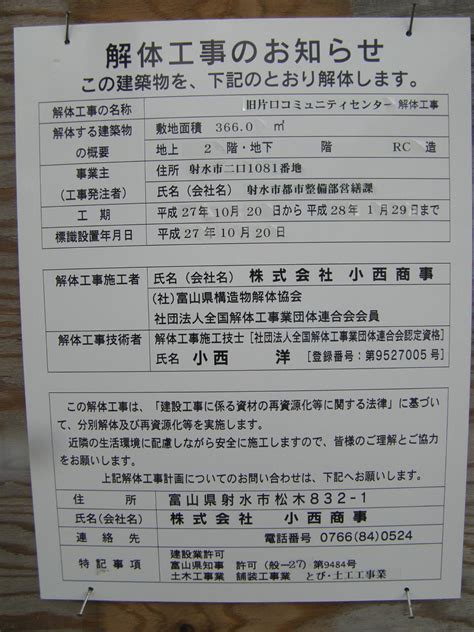 解体工事のお知らせ
この建築物を、下記のとおり解体します。
解体工事の名称 旧片口コミュニティセンター 解体工事
解体する建築物の概要 敷地面積 366.0 ㎡
地上 2 階・地下 階 RC 造
事業主(工事発注者) 住所 射水市二口1081番地
氏名(会社名) 射水市都市整備部営繕課
工期 平成27年10月20日から平成28年1月29日まで
標識設置年月日 平成27年10月20日
解体工事施工者 氏名(会社名) 株式会社 小西商事
(社)富山県構造物解体協会
社団法人全国解体工事業団体連合会会員
解体工事技術者 解体工事施工技士 [社団法人全国解体工事業団体連合会認定資格]
氏名 小西 洋 [登録番号:第9527005号]
この解体工事は、「建設工事に係る資材の再資源化等に関する法律」に基づい
て、分別解体及び再資源化等を実施します。
近隣の生活環境に配慮しながら安全に施工しますので、皆様のご理解とご協力
をお願いします。
上記解体工事計画についてのお問い合わせは、下記へお願いします。
住所 富山県射水市松木832-1
氏名(会社名) 株式会社 小西商事
連絡先 電話番号 0766(84)0524
特記事項 建設業許可
富山県知事 許可(般-27)第9484号
土木工事業 舗装工事業 とび・土工工事業